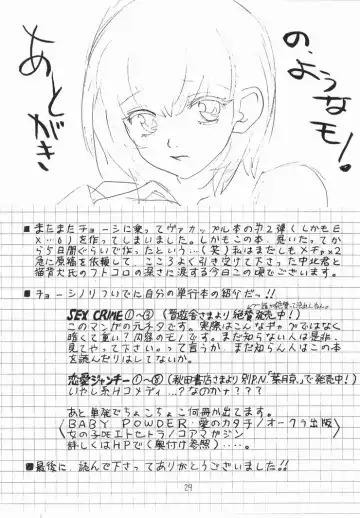 の、ようなモノ。
あとがき
■またまたチョーシに乗ってヴァカップル本の第2弾(しかもE
X…6)を作ってしまいました。しかもこの本、思いたってか
ら5日間ぐらいで作ったという…(笑)私はまたしもメチャ×2
急に原稿を依頼して、こころよく引き受けて下さった中北君と
猫背犬氏のフトコロの深さに涙する今日この頃でございます。
■チョーシノリついでに自分の単行本の紹介だっ!!
SEX CRIME①~③
このマンガの元ネタです。実際はこんなギャグではなく
暗くて重い?内容のモノです。まだ知らない人は是非、
見てやって下さい。って言うか、まだ知らん人はこの本
を読んだりはしてないか。
恋愛ジャンキー①~⑧(秋田書店さまより
で発売中!)
いやし系Hコメディ…?なのか????
あと単発でちょこちょこ何冊か出てます。
BABY POWDER・愛のカタチ/オークラ出版
女の子DEエトセトラ/コアマガジン
詳しくはHPで(奥付け参照)…。
■最後に、読んで下さってありがとうございました!!
29